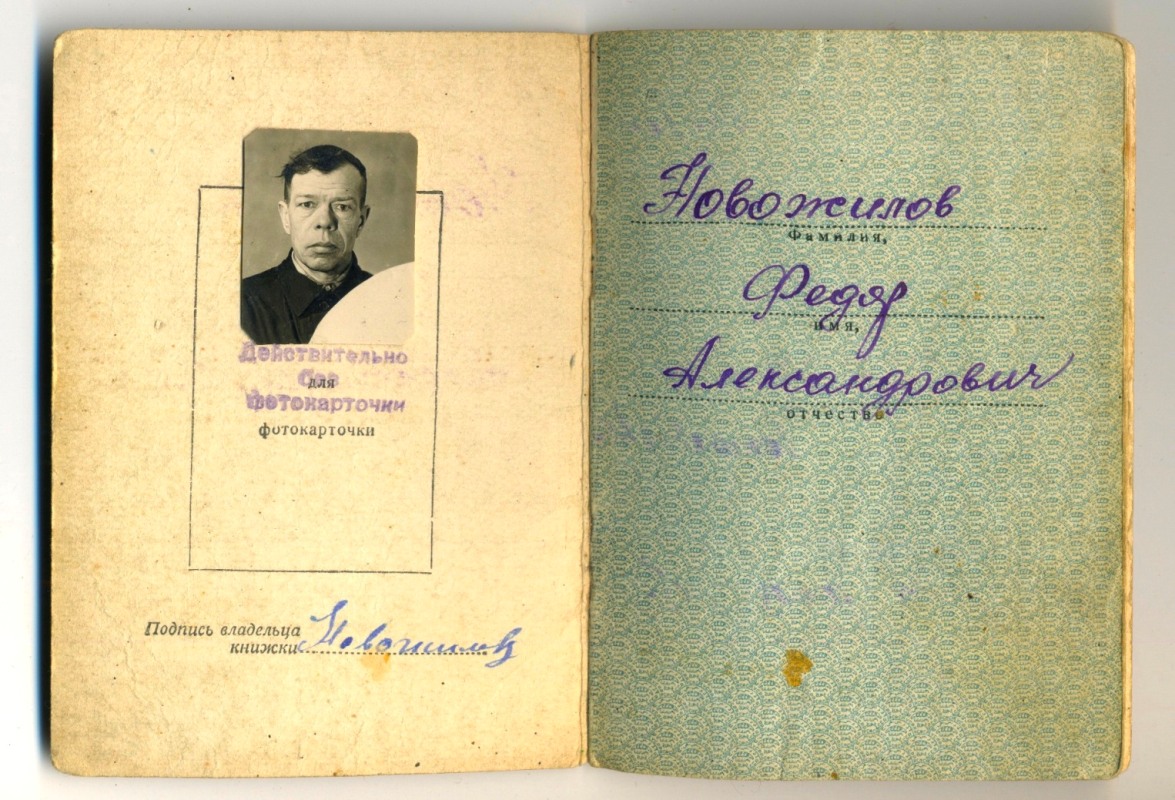 Действительно
без
для
фотокарточки
фотокарточки
Подпись владельца
книжки Новожилов
Новожилов
Фамилия,
Федор
имя,
Александрович
отчество